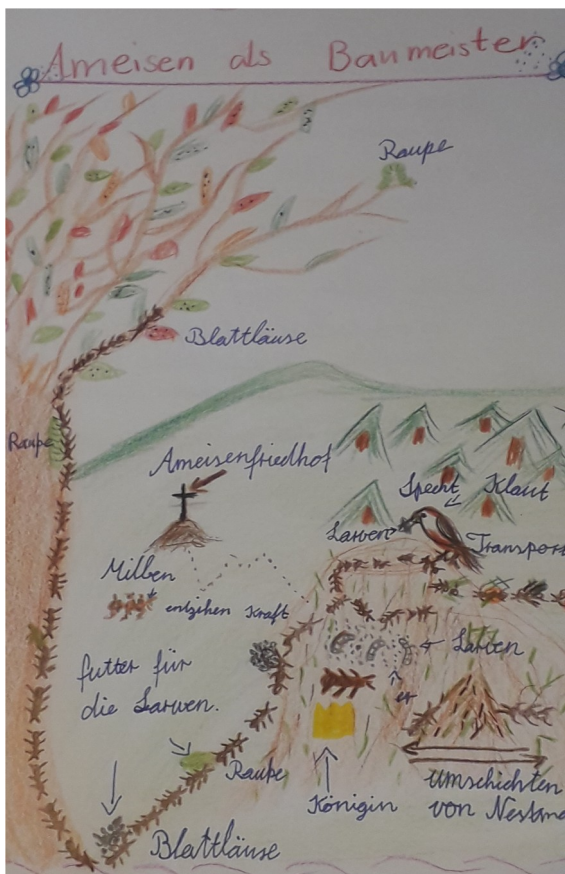 Ameisen als Baumeister
Raupe
Blattläuse
Raupe
Ameisenfriedhof
Specht Klaut
Larven
Transport
Milben
entzihen Kraft
Larven
futter für
die Larven.
er
Raupe
Königin
Umschichten
von Nestma
Blattläuse